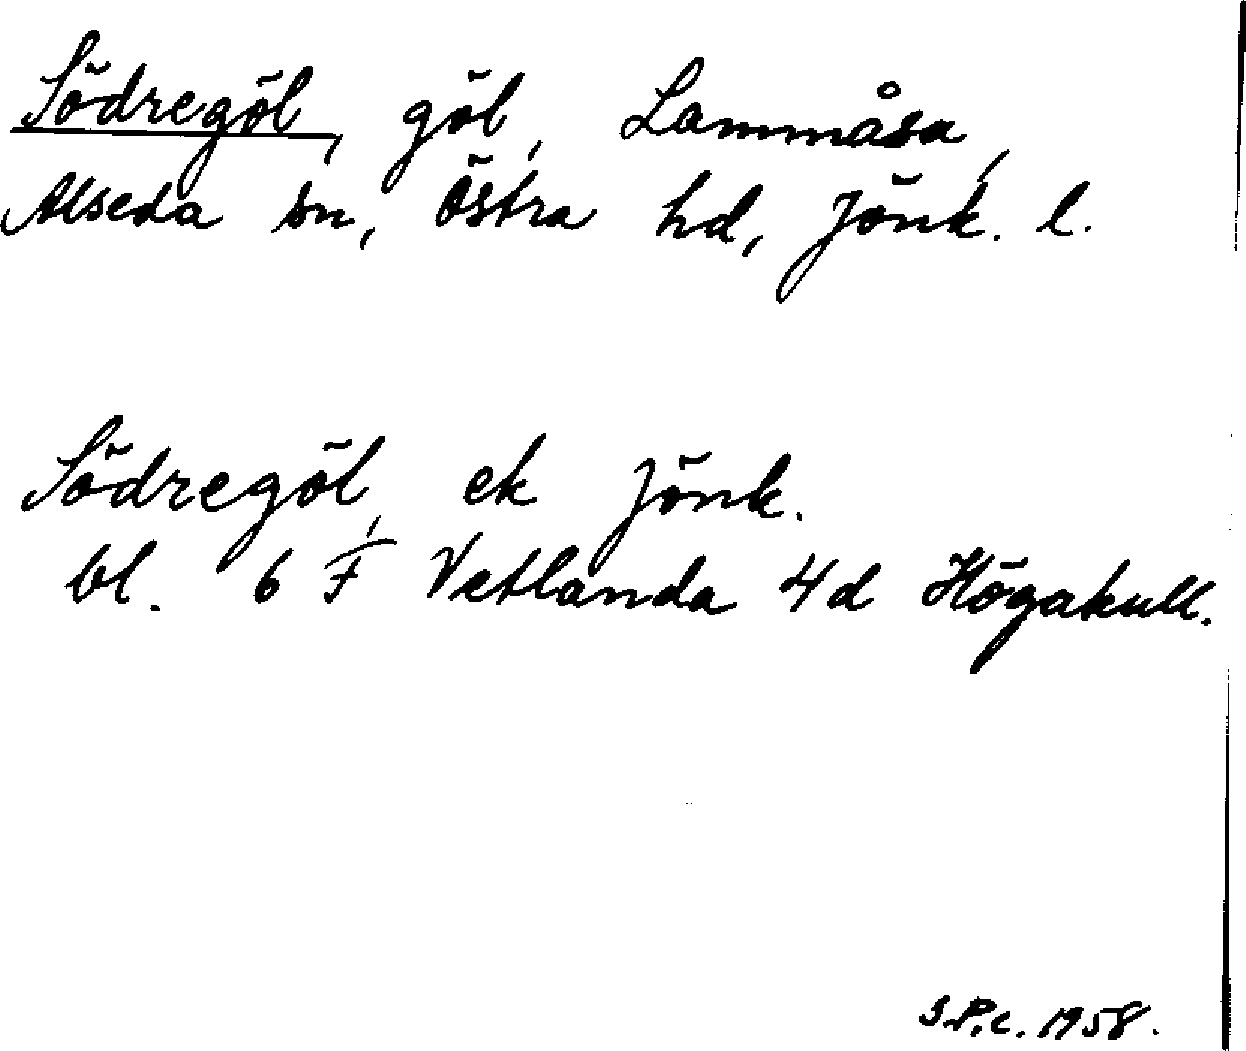 Södregöl, göl, Lammåsa,
Alseda sn, Östra hd, Jönk. l.
Södregöl, ek Jönk.
bl. 6 F Vetlanda 4d Högakull.
S.P.c. 1958.